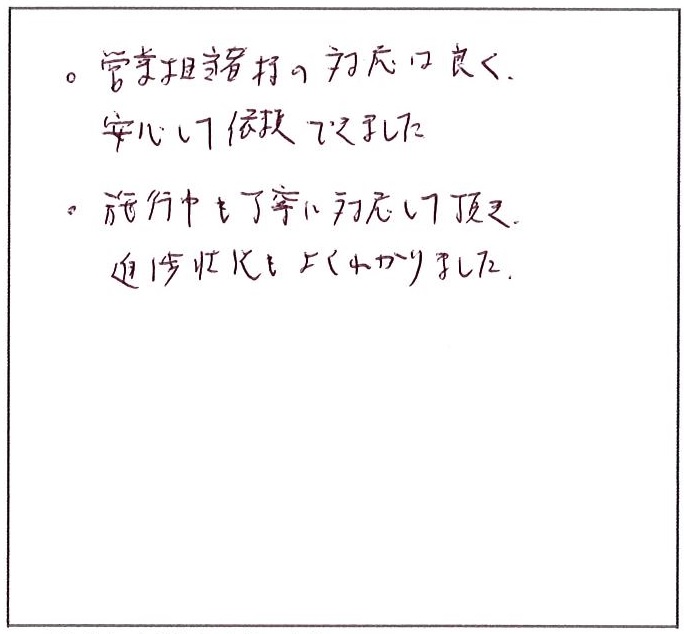 。営業担当者様の対応は良く、
安心して依頼できました
・施行中も丁寧に対応して頂き、
進捗状況もよくわかりました。